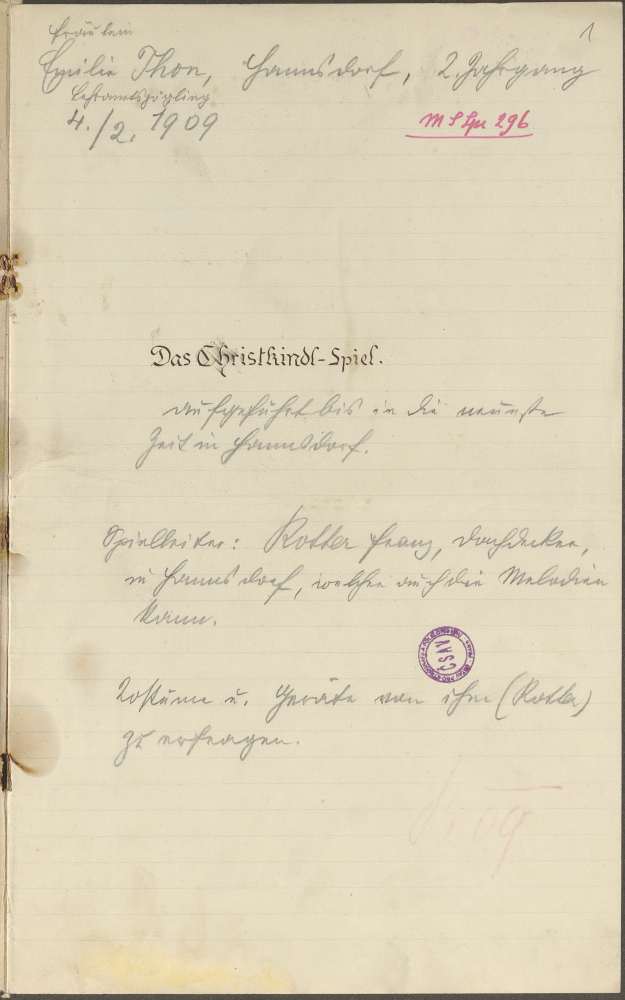 1
Fräulein
Emilie Thon, Hannsdorf, 2. Jahrgang
Lehramtszögling
4./2. 1909
Das Christkindl-Spiel.
aufgeführt bis in die neueste
Zeit in Hannsdorf.
Spielleiter: Rotter Franz, Dachdecker,
in Hannsdorf, welcher auch die Melodien
kann.
ČSAV
Kostüme u. Geräte von ihm (Rotter)
zu erfragen.